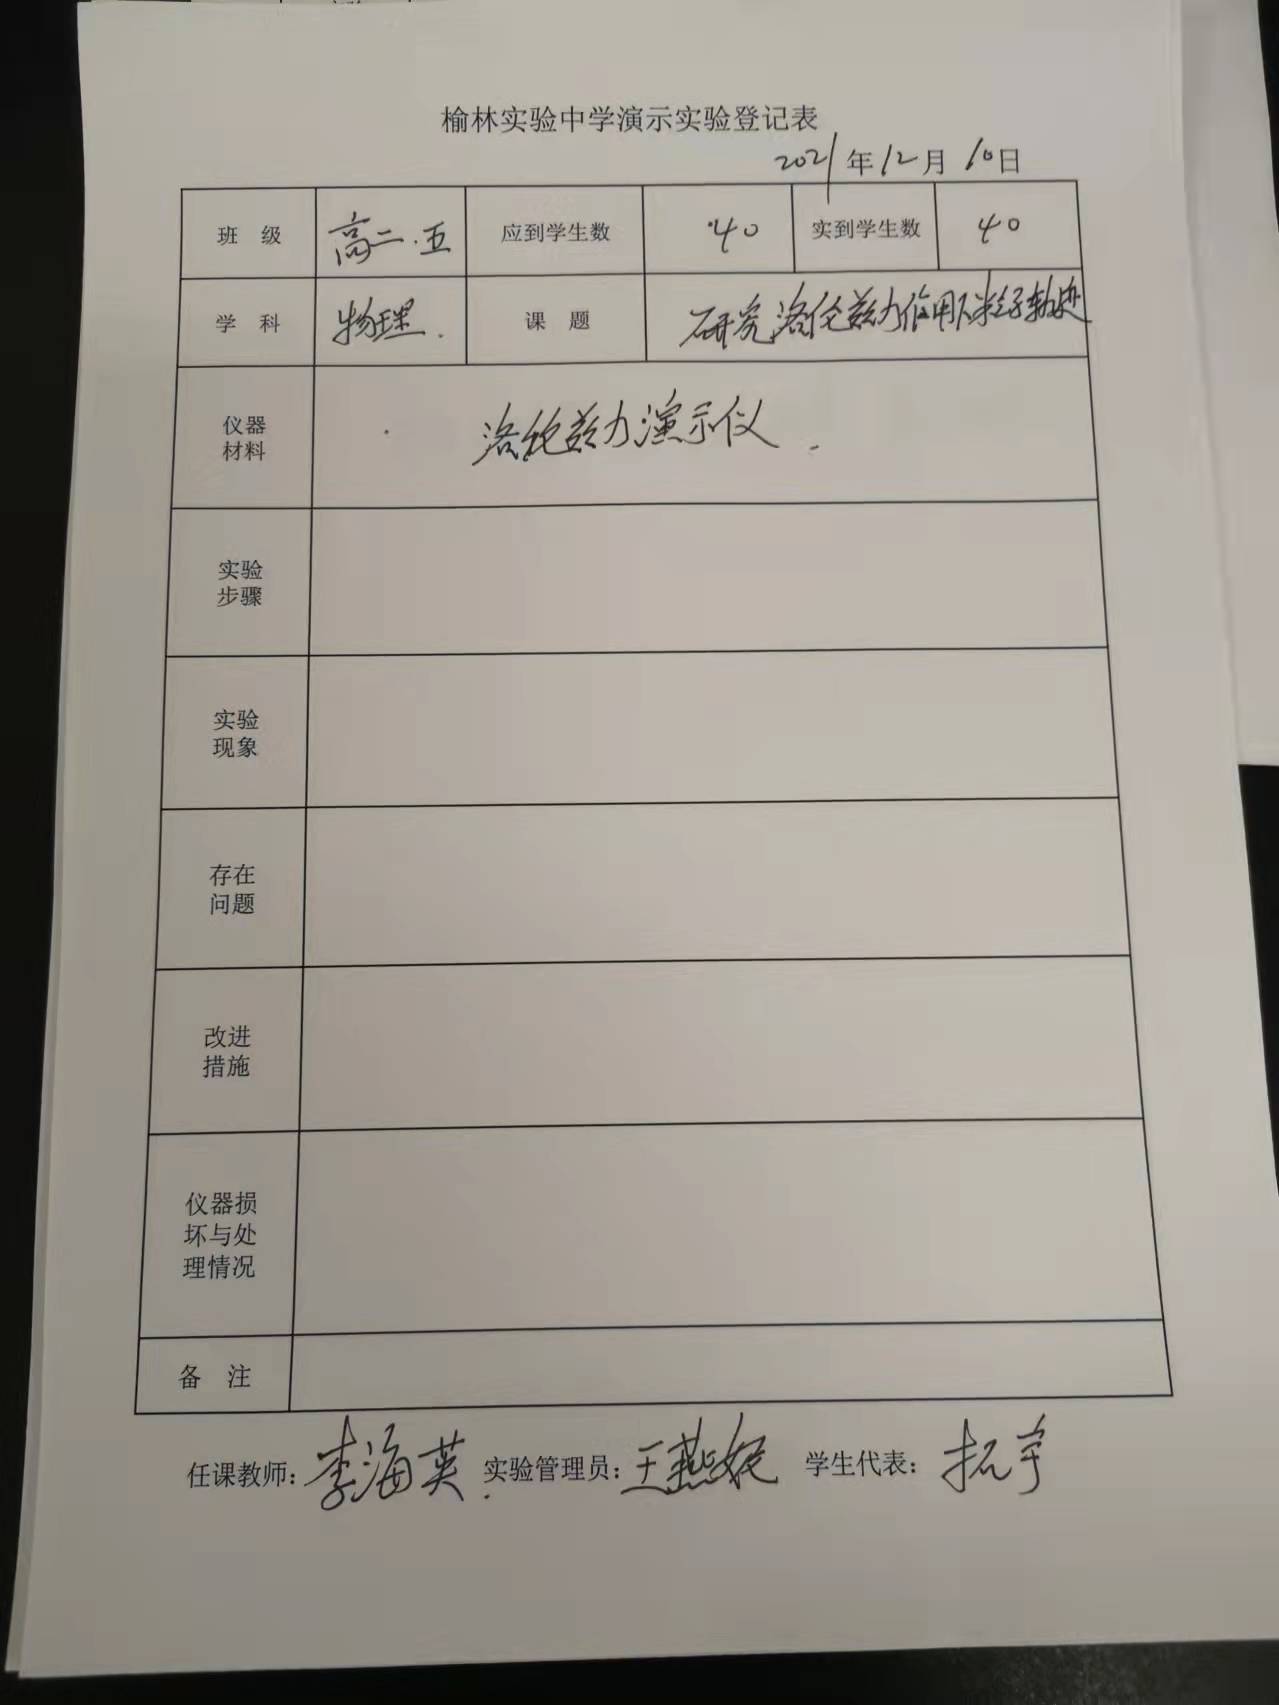 榆林实验中学演示实验登记表
2021年12月10日
班 级 高二.五 应到学生数 40 实到学生数 40
学 科 物理. 课 题 研究洛伦兹力作用下粒子轨迹
仪器
材料
洛伦兹力演示仪.
实验
步骤
实验
现象
存在
问题
改进
措施
仪器损
坏与处
理情况
备 注
任课教师：李海英 实验管理员：王燕妮 学生代表：拓宇